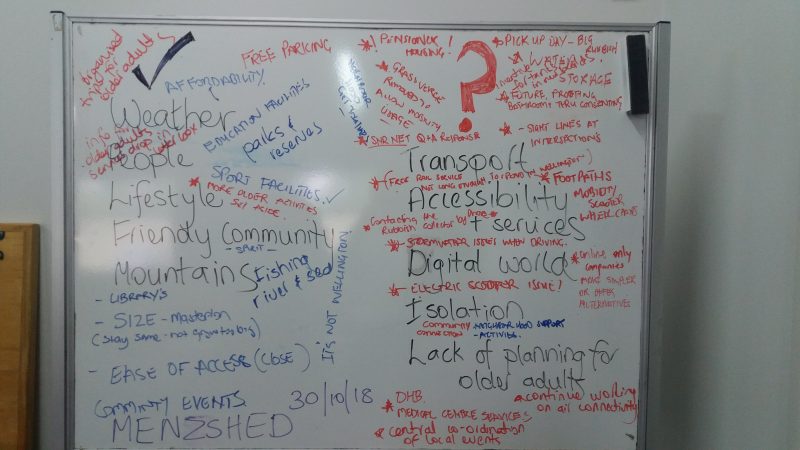 organised
trips for
older adults
AFFORDABILITY.
FREE PARKING
Weather
EDUCATION FACILITIES
parks &
reserves
info
older adults
sent drop in
letter box
People
SPORT FACILITIES.
Lifestyle
* MORE OLDER ACTIVITIES
SET ASIDE.
Friendly Community
- SPIRIT -
Mountains
Fishing
river & sea
- LIBRARY'S
- SIZE - masterton
(stay same - not growing big)
- EASE OF ACCESS (CLOSE)
IT'S NOT WELLINGTON!
COMMUNITY EVENTS
30/10/18
MENZSHED
* PENSIONER!
HOUSING.
* GRASSVERGE
REMOVED,
ALLOW MOBILITY
USAGE
* SNR NET Q+A RESPONSE
?
* PICK UP DAY - BIG
RUBBISH
* WATER
STORAGE
* FUTURE PROOFING
BATHROOMS THRU CONSENTING
* - SIGHT LINES AT
INTERSECTIONS
Transport
* (FREE RAIL SERVICE
NOT LONG ENOUGH TO WELLINGTON)
* FOOTPATHS
MOBILITY
SCOOTER
WHEELCHAIRS
Accessibility
* Contacting the
Rubbish collector by phone
+ services
* STORMWATER ISSUES WHEN DRIVING.
Digital world
* Online only
companies
- MAKE SIMPLER
OR OFFER
ALTERNATIVES
* - ELECTRIC SCOOTER ISSUE!
Isolation
COMMUNITY NEIGHBOURHOOD SUPPORT
CONNECTION - ACTIVITIES.
Lack of planning for
older adults
* DHB.
* MEDICAL CENTRE SERVICES
* central co-ordination
of local events
* continue working
on air connectivity